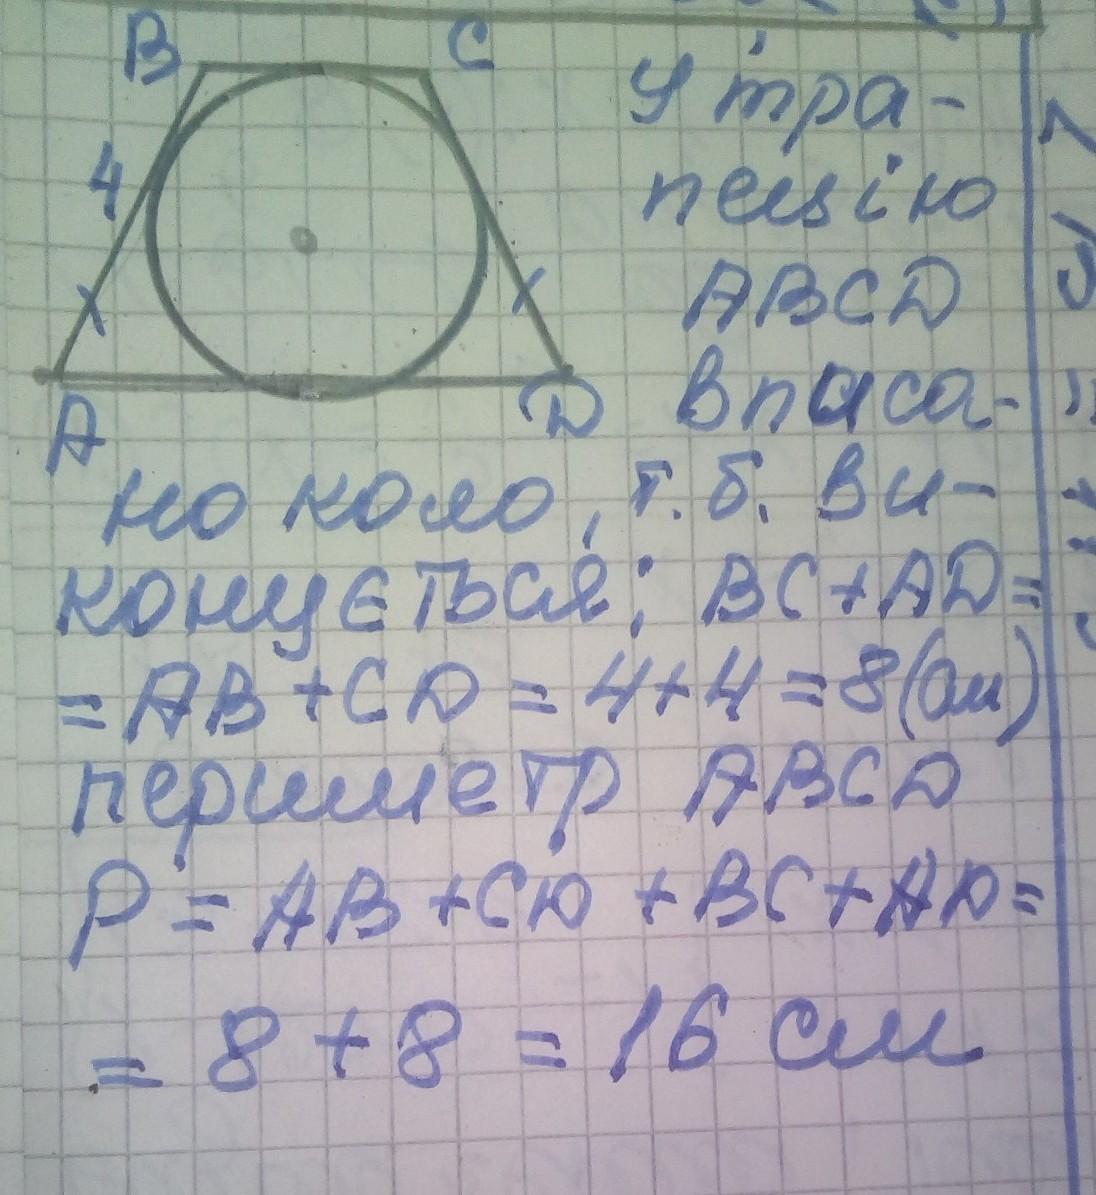 B C
4
A D
У тра-
пецію
ABCD
вписа-
но коло, т.б. ви-
конується: BC+AD=
=AB+CD=4+4=8(см)
периметр ABCD
P=AB+CD+BC+AD=
=8+8=16 см